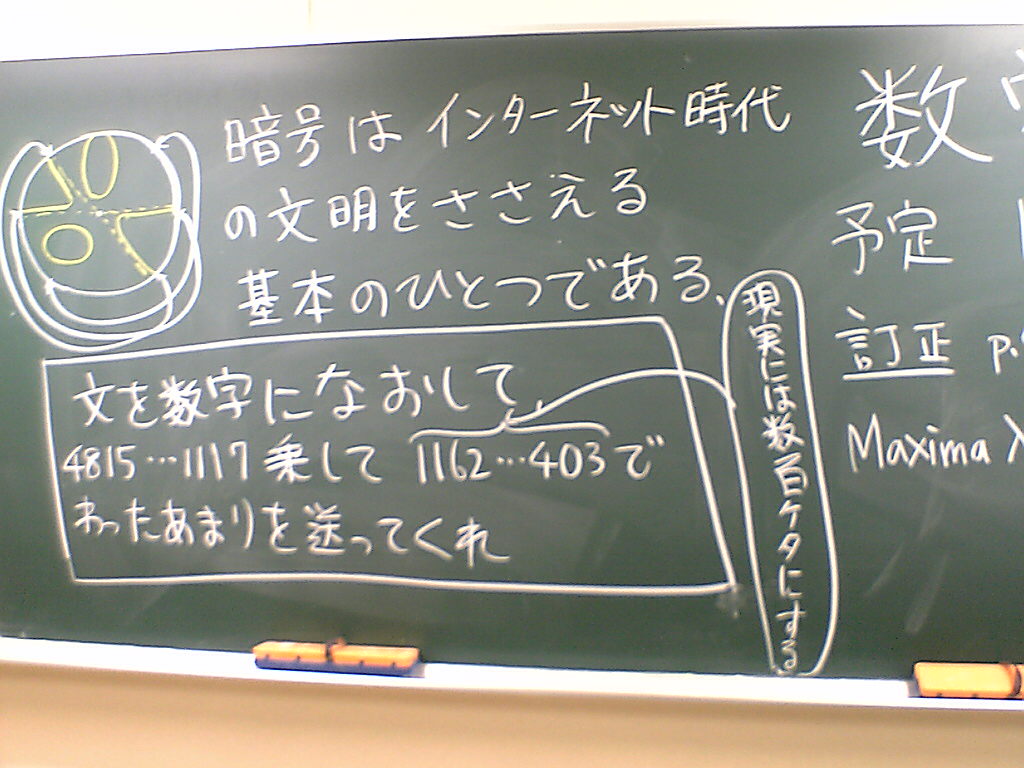 暗号は インターネット時代
の文明をささえる
基本のひとつである、
文を数字になおして
4815…1117 乗して 1162…403で
わったあまりを送ってくれ
現実には数百ケタにする
数
予定
訂正 p.
Maxima